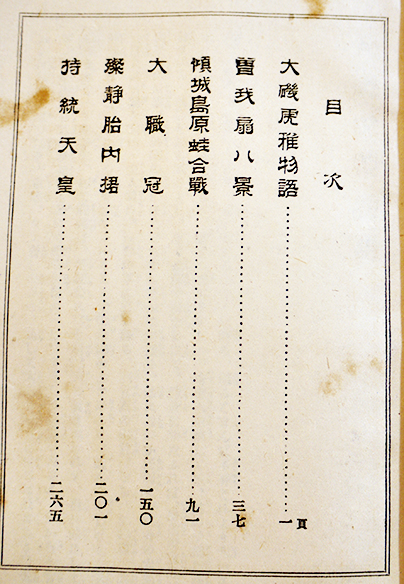 目次
大磯虎稚物語……一頁
曽我扇八景……三七
傾城島原蛙合戰……九一
大職冠……一五〇
殩静胎内捃……二〇一
持統天皇……二六五